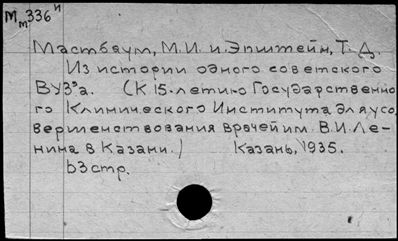 Мm336и
Мастбаум, М.И. и Эпштейн, Т.Д.
Из истории одного советского
ВУЗ"а. (К 15-летию Государственно
го Клинического Института для усо
вершенствования врачей им. В.И. Ле-
нина в Казани.) Казань, 1935.
63 стр.